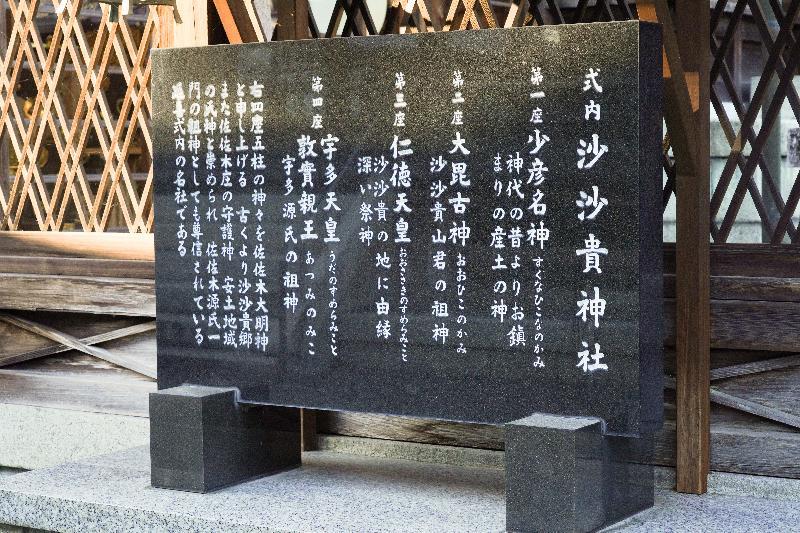 式内 沙沙貴神社
第一座 少彦名神 すくなひこなのかみ
神代の昔よりお鎮
まりの産土の神
第二座 大毘古神 おおひこのかみ
沙沙貴山君の祖神
第三座 仁徳天皇 おおささきのすめらみこと
沙沙貴の地に由縁
深い祭神
第四座 宇多天皇 うだのすめらみこと
敦實親王 あつみのみこ
宇多源氏の祖神
右四座五柱の神々を佐佐木大明神
と申し上げる 古くより沙沙貴郷
また佐佐木庄の守護神 安土地域
の氏神と崇められ 佐佐木源氏一
門の祖神としても尊信されている
式内の名社である